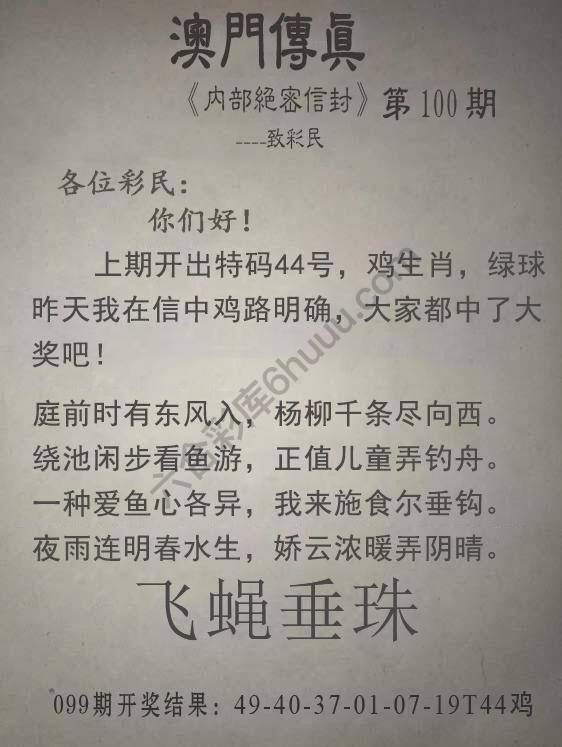 澳門傳眞
《内部絕密信封》第100期
----致彩民
各位彩民：
你们好！
上期开出特码44号，鸡生肖，绿球
昨天我在信中鸡路明确，大家都中了大
奖吧！
庭前时有东风入，杨柳千条尽向西。
绕池闲步看鱼游，正值儿童弄钓舟。
一种爱鱼心各异，我来施食尔垂钩。
夜雨连明春水生，娇云浓暖弄阴晴。
飞蝇垂珠
099期开奖结果：49-40-37-01-07-19T44鸡
六合彩库6huuu.com